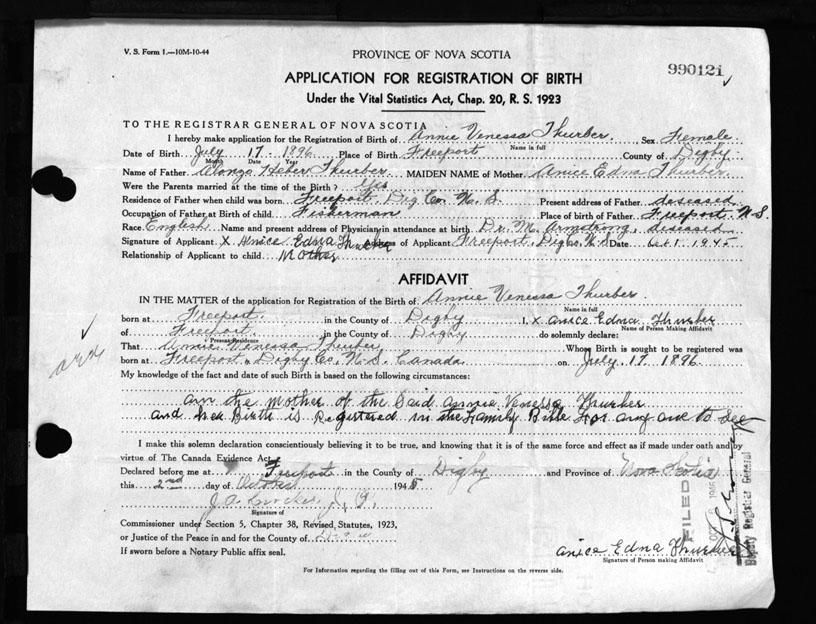 V. S. Form 1.—10M-10-44
PROVINCE OF NOVA SCOTIA
990121
APPLICATION FOR REGISTRATION OF BIRTH
Under the Vital Statistics Act, Chap. 20, R. S. 1923
TO THE REGISTRAR GENERAL OF NOVA SCOTIA
I hereby make application for the Registration of Birth of Annie Venessa Thurber Sex Female
Name in full
Date of Birth July 17 1896 Place of Birth Freeport County of Digby
Month Date Year
Name of Father Alonzo Heber Thurber MAIDEN NAME of Mother Anice Edna Thurber
Were the Parents married at the time of the Birth? Yes
Residence of Father when child was born Freeport, Dig Co. N. S. Present address of Father deseased
Occupation of Father at Birth of child Fisherman Place of birth of Father Freeport N S
Race English Name and present address of Physician in attendance at birth Dr. M. Armstrong, deseased
Signature of Applicant X Anice Edna Thurber Address of Applicant Freeport, Digby, N. S Date Oct 1 1945
Relationship of Applicant to child Mother
AFFIDAVIT
IN THE MATTER of the application for Registration of the Birth of Annie Venessa Thurber
Name in full
born at Freeport in the County of Digby I, x Anice Edna Thurber
Name of Person Making Affidavit
of Freeport in the County of Digby do solemnly declare:
Present Residence
That Annie Vanessa Thurber Whose Birth is sought to be registered was
born at Freeport, Digby Co, N. S. Canada on July 17 1896
My knowledge of the fact and date of such Birth is based on the following circumstances:
am the mother of the Said Annie Venessa Thurber
and her Birth is Registered in the Family Bible For any one to See
I make this solemn declaration conscientiously believing it to be true, and knowing that it is of the same force and effect as if made under oath and by
virtue of The Canada Evidence Act.
Declared before me at Freeport in the County of Digby and Province of Nova Scotia
this 2nd day of October 1945
J. P.
Signature of
Commissioner under Section 5, Chapter 38, Revised Statutes, 1923,
or Justice of the Peace in and for the County of Digby
If sworn before a Notary Public affix seal.
Anice Edna Thurber
Signature of Person making Affidavit
FILED
Deputy Registrar General
For Information regarding the filling out of this Form, see Instructions on the reverse side.